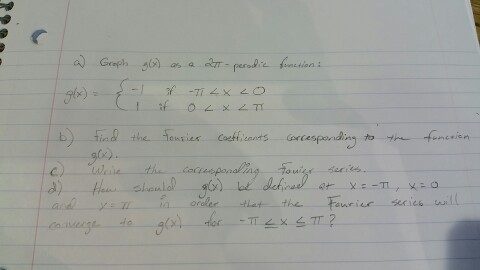 a) Graph g(x) as a 2π-periodic function:
g(x) = { -1 if -π < x < 0
1 if 0 < x < π
b) Find the Fourier coefficients corresponding to the function
g(x).
c) Write the corresponding Fourier series.
d) How should g(x) be defined at x = -π, x = 0
and x = π in order that the Fourier series will
converge to g(x) for -π ≤ x ≤ π?